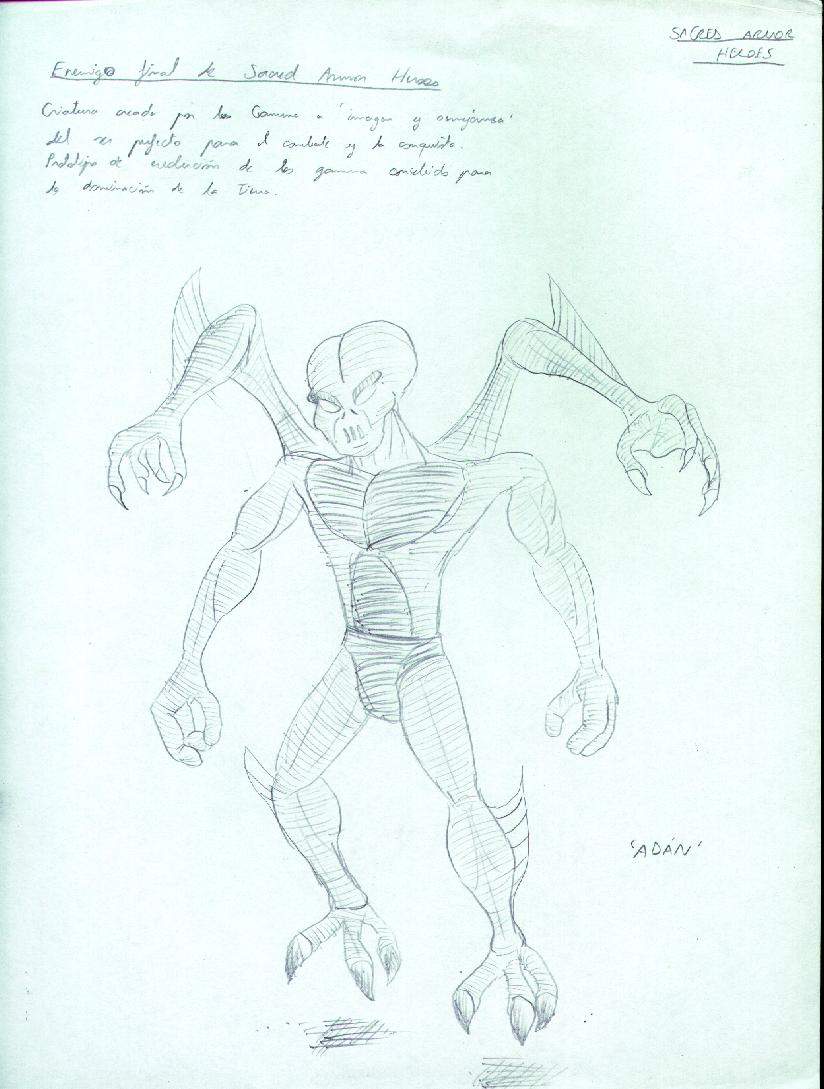 SACRED ARMOR
HEROES
Enemigo final de Sacred Armor Heroes
Criatura creada por los Gamma a 'imagen y semejanza'
del ser perfecto para el combate y la conquista.
Prototipo de evolución de los gamma concebido para
la dominación de la Tierra.
'ADÁN'